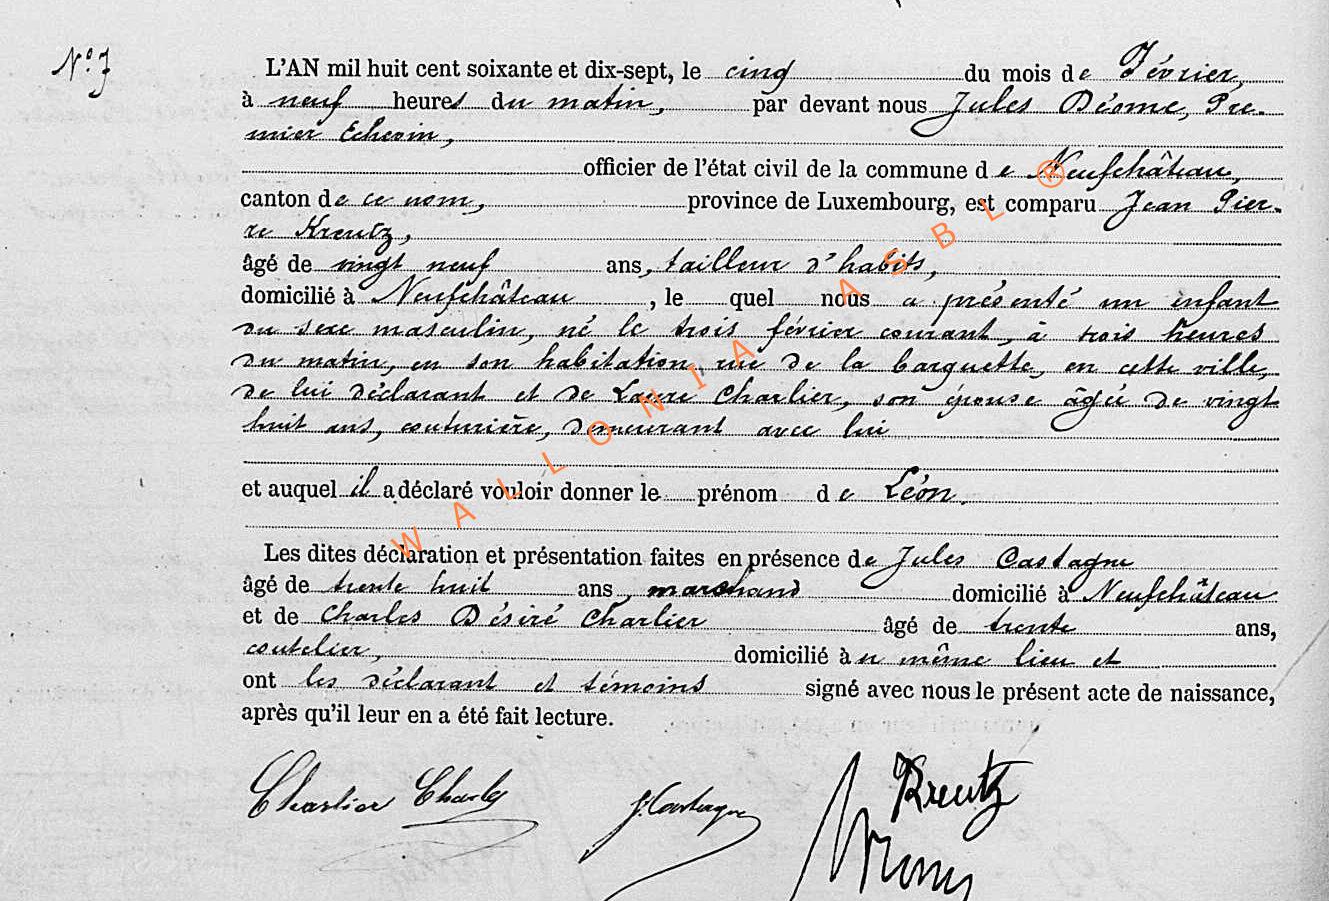 N° 7
L'AN mil huit cent soixante et dix-sept, le cinq du mois de Février,
à neuf heures du matin, par devant nous Jules Déome, Pre-
mier Echevin,
officier de l'état civil de la commune de Neufchâteau,
canton de ce nom, province de Luxembourg, est comparu Jean Pier-
re Kreutz,
âgé de vingt neuf ans, tailleur d'habits,
domicilié à Neufchâteau, le quel nous a présenté un enfant
du sexe masculin, né le trois février courant, à trois heures
du matin, en son habitation, rue de la barquette, en cette ville,
de lui déclarant et de Laure Charlier, son épouse âgée de vingt
huit ans, couturière, demeurant avec lui
et auquel il a déclaré vouloir donner le prénom de Léon,
Les dites déclaration et présentation faites en présence de Jules Castagne
âgé de trente huit ans, marchand domicilié à Neufchâteau
et de Charles Désiré Charlier âgé de trente ans,
coutelier, domicilié à u même lieu et
ont les déclarant et témoins signé avec nous le présent acte de naissance,
après qu'il leur en a été fait lecture.
Charlier Charles J. Castagne Kreutz
WALLONIA ASBL ®